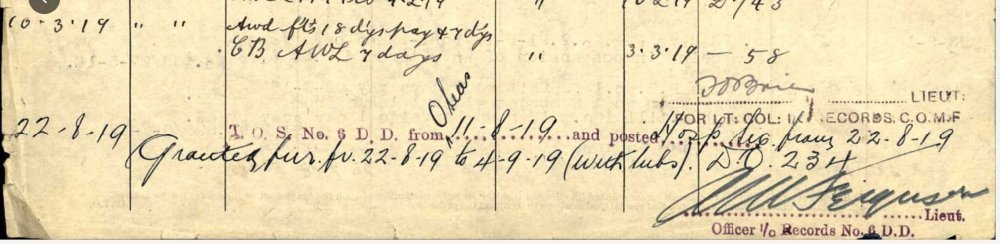 10-3-19 " " Awd fts 18 dys pay & 7 dys
CB AWL 7 days " 3-3-19 - 58
LIEUT:
FOR LT: COL: I/C RECORDS. C.O.M.F
22-8-19 T. O. S. No. 6 D. D. from O'seas 11-8-19 and posted Hosp. Sec. from 22-8-19
Granted fur. fr. 22-8-19 to 4-9-19 (with subs). D.O. 234
Ferguson
Lieut.
Officer i/c Records No. 6 D.D.